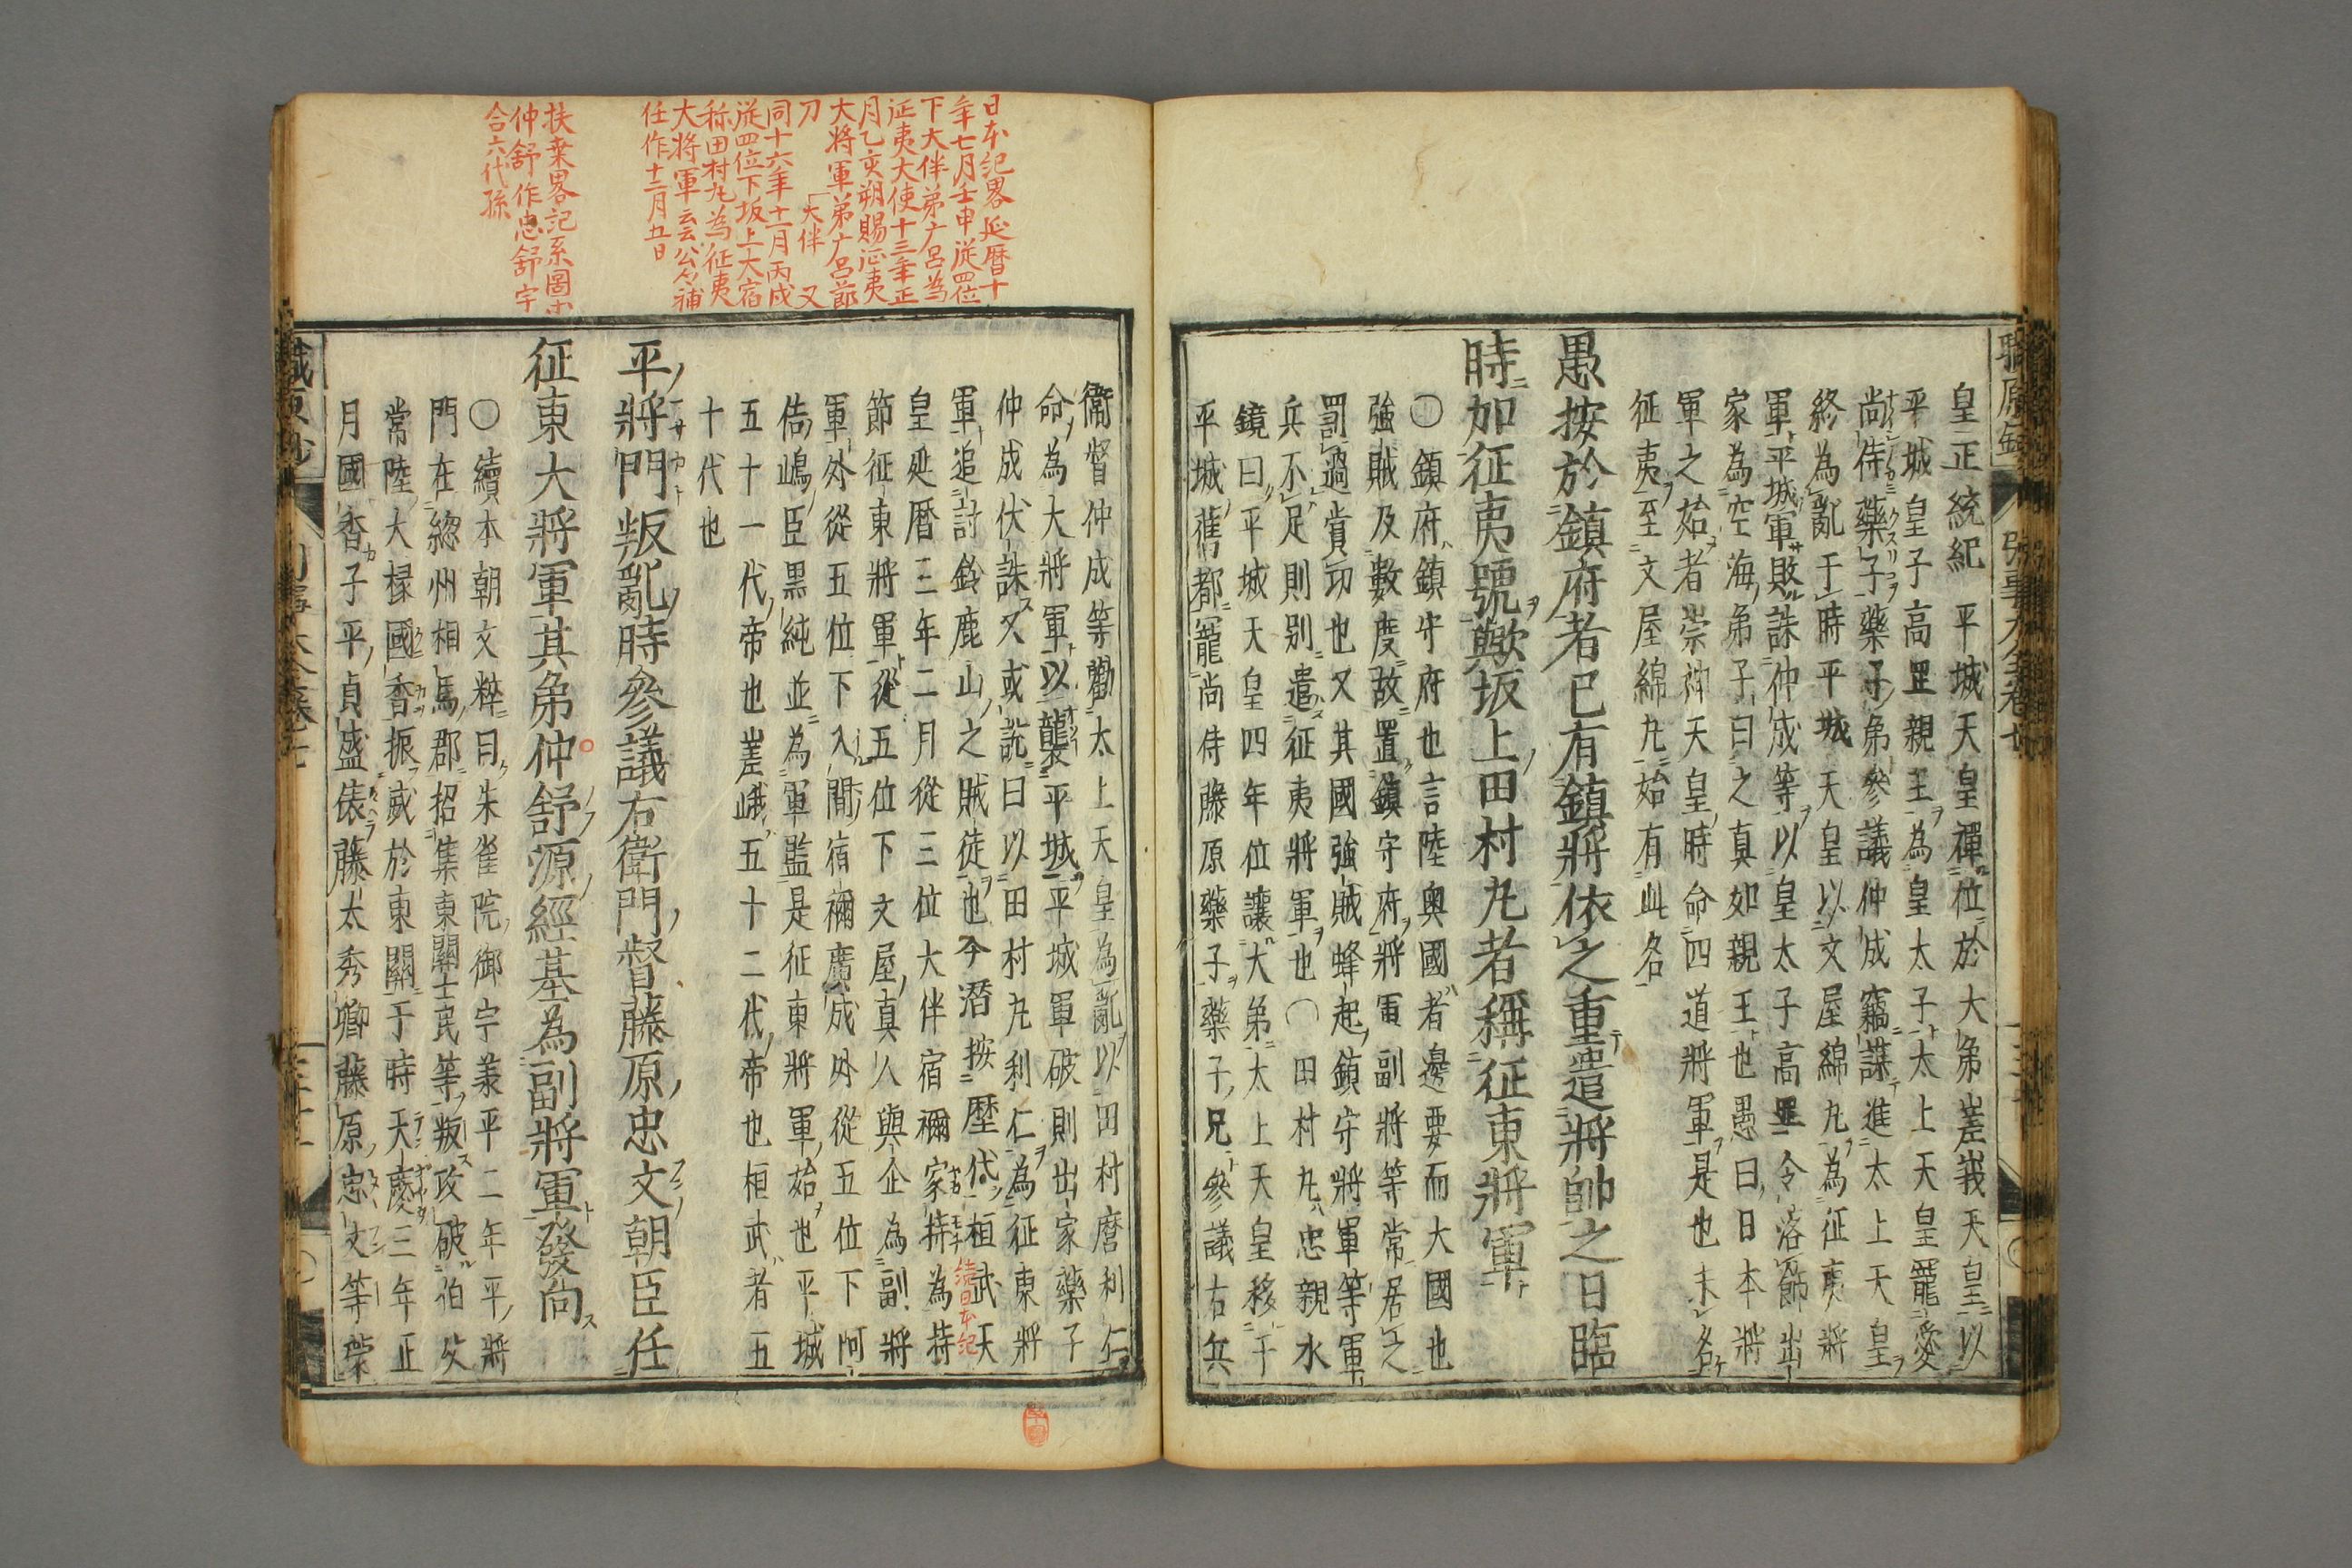 皇正統紀平城天皇禪位於大弟嵯峩天皇以
平城皇子高㽵親王為皇太子太上天皇寵愛
尚侍藥子藥子弟參議仲成竊謀進太上天皇
終為亂于時平城天皇以文屋綿丸為征夷將
軍平城軍敗誅仲成等以皇太子高㽵令落餝出
家為空海弟子曰之真如親王也愚曰日本將
軍之始者崇神天皇時命四道將軍是也未名
征夷至文屋綿丸始有此名
愚按於鎮府者已有鎮將依之重遣將帥之日臨
時加征夷號歟坂上田村丸者稱征東將軍
〇鎮府鎮守府也言陸奥國者邊要而大國也
強賊及數度故置鎮守府將軍副將等常居之
罰過賞功也又其國強賊蜂起鎮守將軍等軍
兵不足則別遣征夷將軍也〇田村丸忠親水
鏡曰平城天皇四年位讓大弟太上天皇移于
平城舊都寵尚侍藤原藥子藥子兄參議右兵
日本記畧延暦十
年七月壬申從四位
下大伴弟广呂為
征夷大使十三年正
月乙亥朔賜征夷
大將軍弟广呂節
刀「大伴 又
同十六年十一月丙戌
從四位下坂上大宿
称田村丸為征夷
大將軍云云公々補
任作十二月五日
扶桒畧記系圖尓
仲舒作忠舒宇
合六代孫
衞督仲成等勸太上天皇為亂以田村麿利仁
命為大將軍以襲平城平城軍破則出家藥子
仲成伏誅又或説曰以田村丸利仁為征東將
軍追討鈴鹿山之賊徒也今潛按歴代桓武天
皇延暦三年二月從三位大伴宿禰家持為持
續日本記
節征東將軍從五位下文屋真人與企為副將
軍外從五位下入間宿禰廣成外從五位下阿
倍嶋臣黒純並為軍監是征東將軍始也平城
五十一代帝也嵯峨五十二代帝也桓武者五
十代也
平將門叛亂時參議右衛門督藤原忠文朝臣任
征東大將軍其弟仲舒源經基為副將軍發向
〇續本朝文粹曰朱雀院御宇羕平二年平將
門在緫州相馬郡招集東關士民等叛攻破伯父
常陸大椽國香振威於東關于時天慶三年正
月國香子平貞盛俵藤太秀郷藤原忠文等蒙